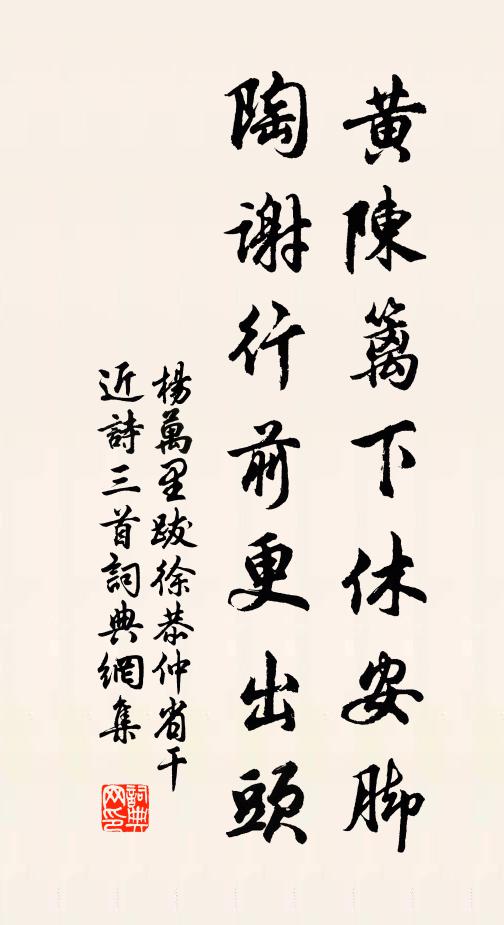 黄陳籬下休安脚
陶謝行前更出頭
楊萬里跋徐恭仲省干
近詩三首詞典網集
詞典网印